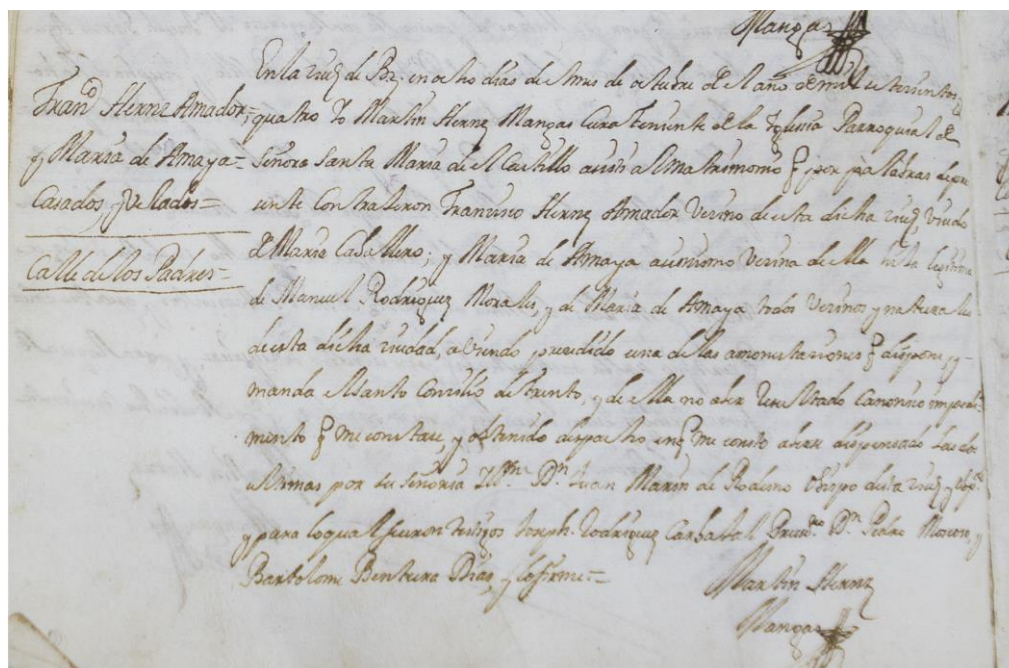 Mangas
Franco Hernz Amador,
y Maria de Amaya =
Casados, y Velados =
Calle de los Padres =
En la ciud de Bz. en ocho dias de el mes de octubre de el año de mil setesientos
quatro Yo Martin Hernz Mangas Cura Teniente de la Yglesia Parroquial de
Señora Santa Maria de el Castillo asisti al matrimonio q por palabras de pre
sente Contrajeron Francisco Hernz Amador Vezino de esta dicha ciud, Viudo
de Maria Caballero; y Maria de Amaya asimismo Vezina de ella hija lexitima
de Manuel Rodriguez Morales, y de Maria de Amaya todos Vezinos y naturales
de esta dicha ciudad, aviendo presedido una de las amonestasiones q dispone, y
manda el santo Consilio de Trento, y de ella no aber Resultado Canonico impedi
mento q me constase, y obtenido despacho en q me consto aberse dispensado las dos
ultimas por su Señoria Illma Dn Juan Marin de Rodezno Obispo de esta ciud y Obpdo
y para lo qual fueron testigos Joseph Rodriguez Carbajal Presvro Dn Pedro Moreno, y
Bartolome Bentura Dias, y lo firme =
Martin Hernz
Mangas